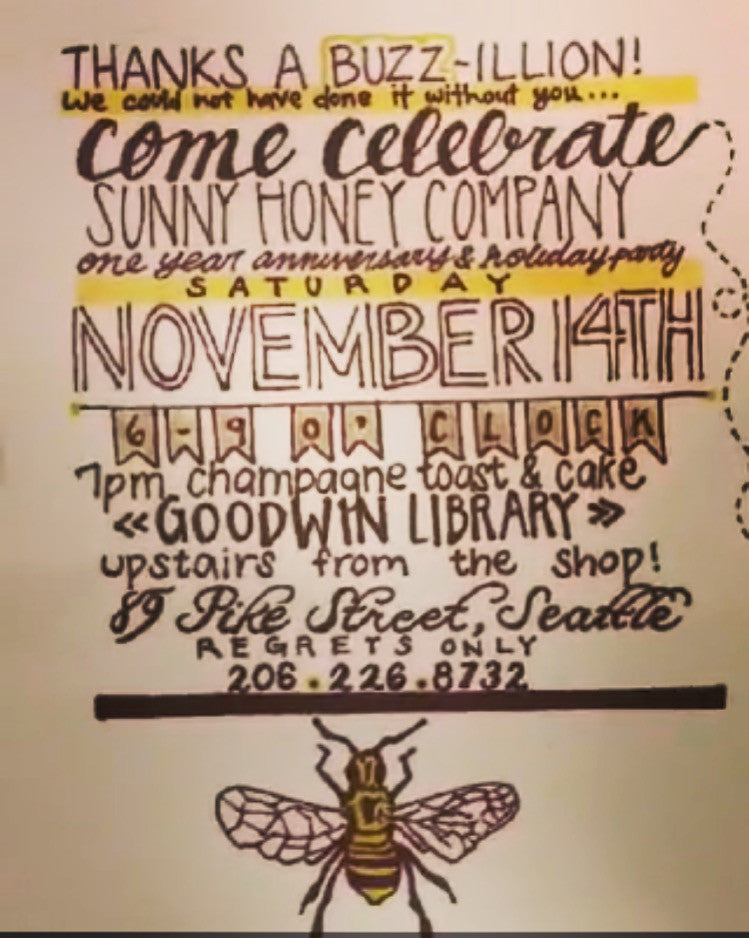 THANKS A BUZZ-ILLION!
We could not have done it without you...
come celebrate
SUNNY HONEY COMPANY
one year anniversary & holiday party
SATURDAY
NOVEMBER 14TH
6-9 O' CLOCK
7pm champagne toast & cake
«GOODWIN LIBRARY»
upstairs from the shop!
89 Pike Street, Seattle
REGRETS ONLY
206.226.8732